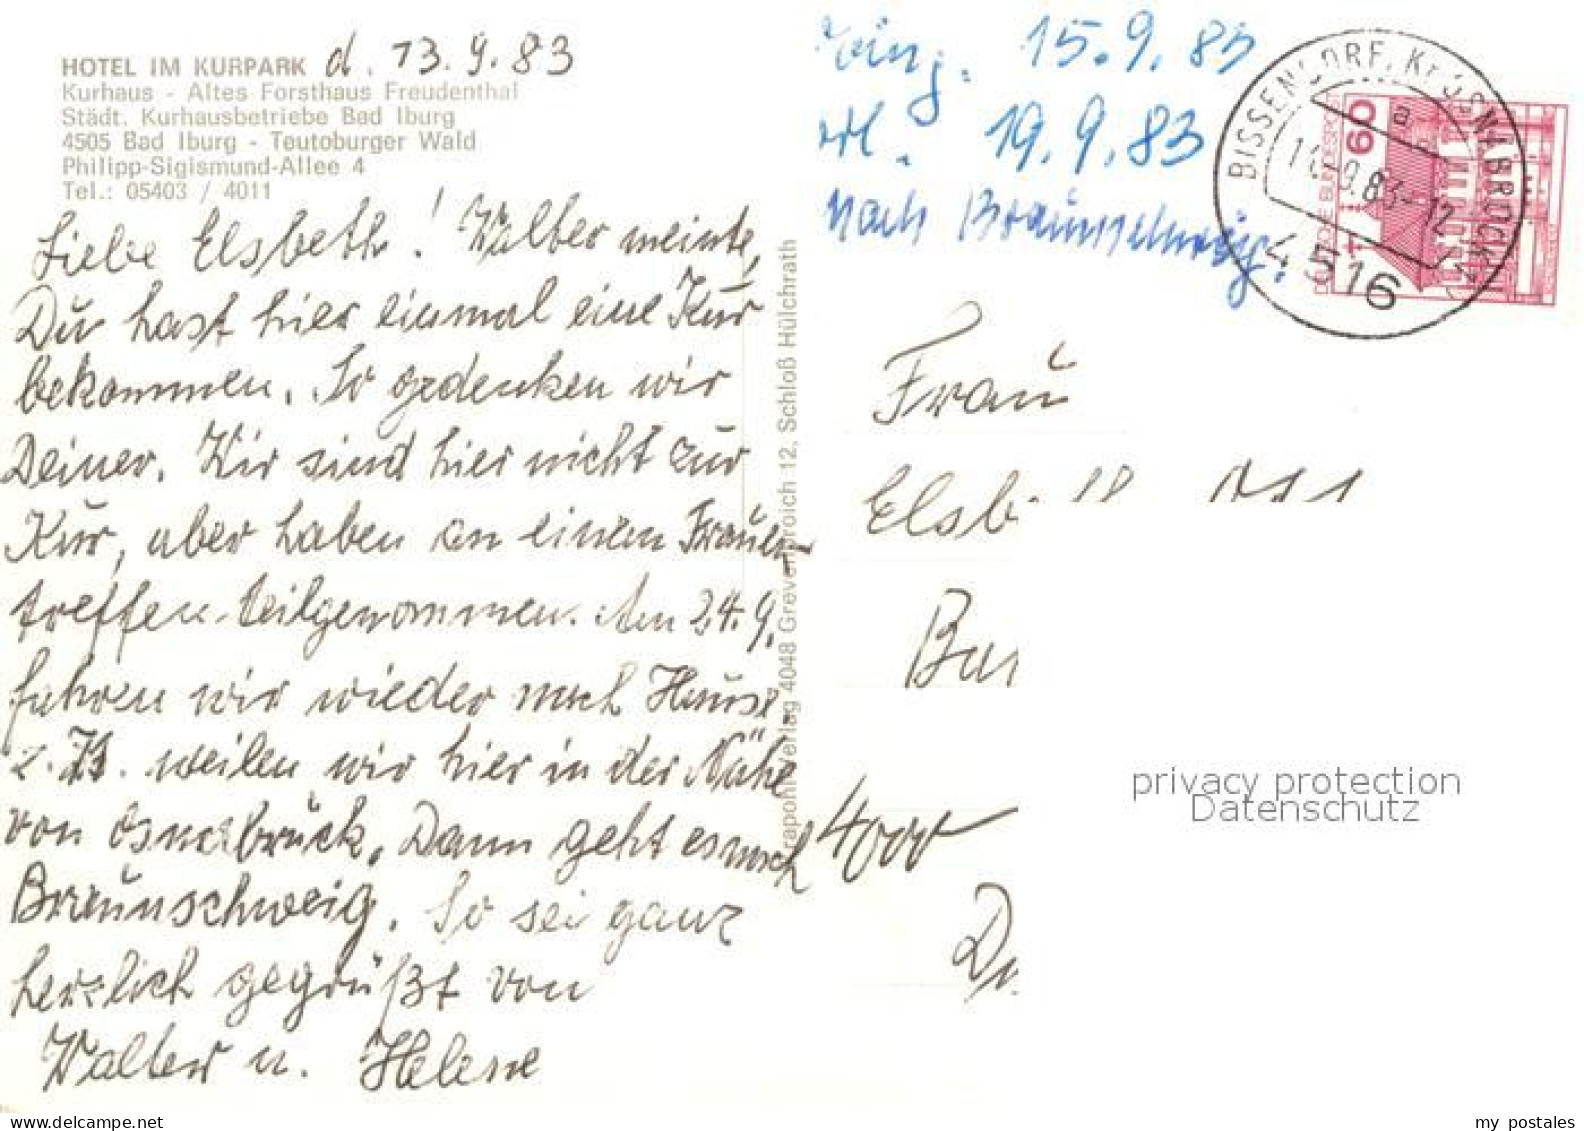 HOTEL IM KURPARK d. 13.9.83
Kurhaus - Altes Forsthaus Freudenthal
Städt. Kurhausbetriebe Bad Iburg
4505 Bad Iburg - Teutoburger Wald
Philipp-Sigismund-Allee 4
Tel.: 05403 / 4011
Liebe Elsbeth! Walter meinte,
Du hast hier einmal eine Kur
bekommen. So gedenken wir
Deiner. Wir sind hier nicht zur
Kur, aber haben an einem Frauen-
treffen teilgenommen. Am 24.9.
fahren wir wieder nach Hause.
z. Zt. weilen wir hier in der Nähe
von Osnabrück. Dann geht es nach
Braunschweig. So sei ganz
herzlich gegrüßt von
Walter u. Helene
rapohl-Verlag 4048 Grevenbroich 12, Schloß Hülchrath
Eing. 15.9.83
19.9.83
nach Braunschweig.
BISSENDORF, KR OSNABRÜCK
a
9.83-12
4516
60
DEUTSCHE BUNDESPOST
Frau
Elsb
4000
privacy protection
Datenschutz
my postales
www.delcampe.net